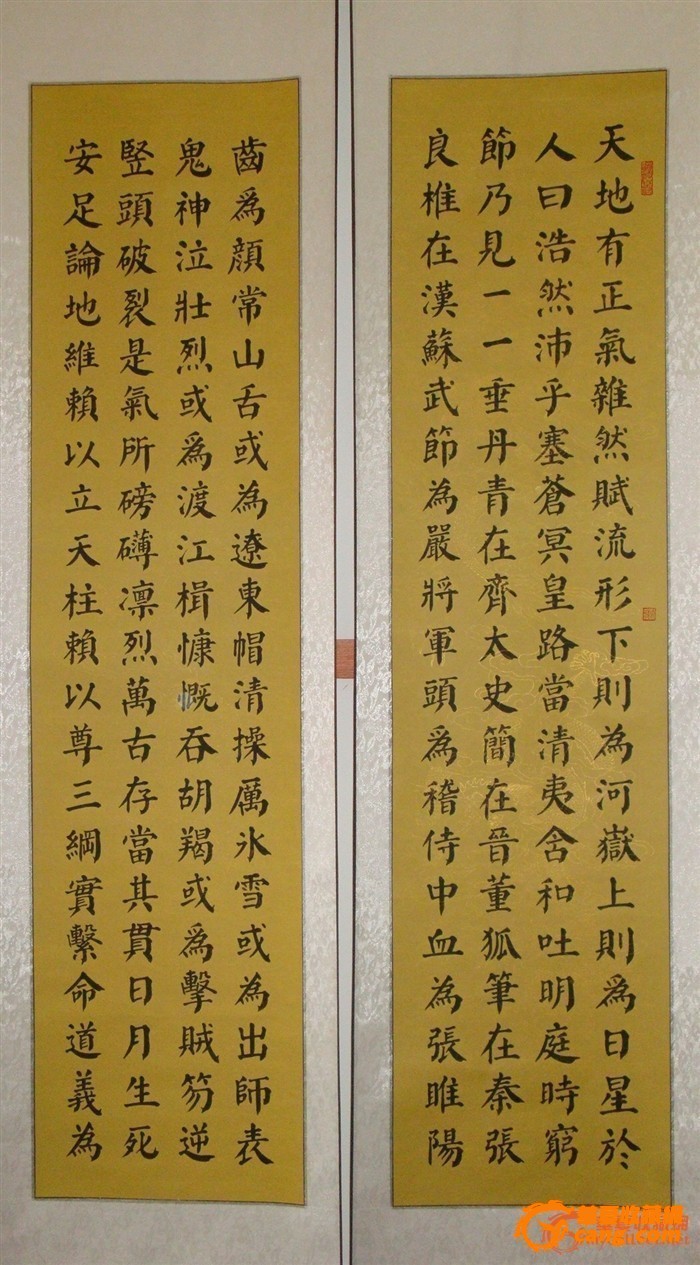 天地有正氣雜然賦流形下則為河嶽上則爲日星於
人曰浩然沛乎塞蒼冥皇路當清夷含和吐明庭時窮
節乃見一一垂丹青在齊太史簡在晉董狐筆在秦張
良椎在漢蘇武節為嚴將軍頭爲稽侍中血為張睢陽
齒爲顏常山舌或為遼東帽清操厲氷雪或為出師表
鬼神泣壯烈或爲渡江楫慷慨吞胡羯或爲擊賊笏逆
竪頭破裂是氣所磅礴凛烈萬古存當其貫日月生死
安足論地維賴以立天柱賴以尊三綱實繫命道義為